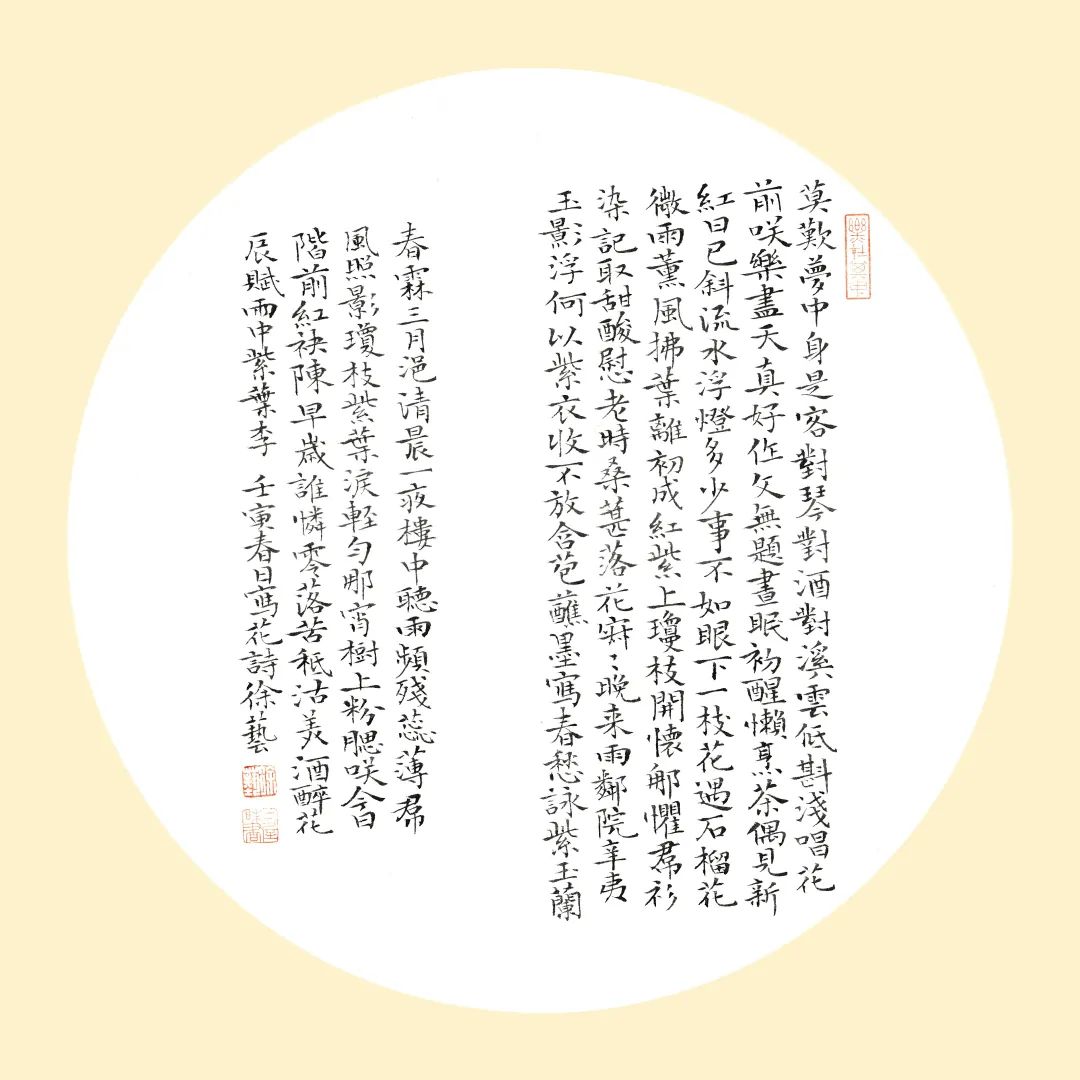 莫歎夢中身是客對琴對酒對溪雲低斟淺唱花
前咲樂盡天真好作文無題晝眠初醒懶烹茶偶見新
紅日已斜流水浮燈多少事不如眼下一枝花遇石榴花
微雨薰風拂葉離初成紅紫上瓊枝開懷郍懼帬衫
染記取甜酸慰老時桑葚落花寂〻晚来雨鄰院辛夷
玉影浮何以紫衣收不放含苞蘸墨寫春愁詠紫玉蘭
春霖三月浥清晨一夜樓中聽雨頻殘蕊薄帬
風照影瓊枝紫葉淚輕勻那宵樹上粉腮咲今日
階前紅袂陳早歲誰憐零落苦秪沽美酒醉花
辰賦雨中紫葉李 壬寅春日寫花詩徐藝